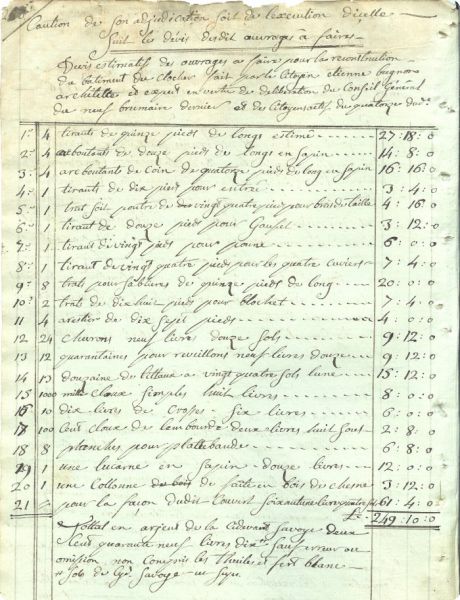 Caution de son adjudication soit de l'execution d'icelle
Suit les dévis desdit ouvrages à faires
Devis estimatif des ouvrages a faire pour la reconstruction
du batiment du Clocher fait par le Citoyen etienne
architette et expert en vertu de deliberation du Conseil Général
du neuf brumaire dernier et de Citoyens actifs du quatorze dudt
1° 4 tirants de quinze pieds de longs estimé 27:18:0
2° 4 arcboutants de douze pieds de longs en sapin 14:8:0
3° 4 arcboutants de Coin de quatorze pieds du long en sapin 16:16:0
4° 1 tirants de dix pied pour entrée 3:4:0
5° 1 trat soit poutre de vingt quatre pied pour bois de taille 4:16:0
6° 1 tirant de douze pied pour 3:12:0
7° 1 tirant de vingt pieds pour 6:0:0
8° 1 tirant de vingt quatre pied pour les quatre 7:4:0
9° 8 trats pour sablieres de quinze pieds de long 20:0:0
10° 2 trats de dix huit pied pour blochet 7:4:0
11 4 arestier de dix sept pieds 4:0
12 24 chevrons neuf livres douze sols 9:12:0
13 12 quarantaines pour reveillons neuf livres douze 9:12:0
14 13 douzaine du littaux a vingt quatre sols lune 15:12:0
15 1000 mille Cloux simples huit livres 8:0:0
16 10 dix livres de Crosses six livres 6:0:0
17 100 Cent Cloux de lambourde deux livres huit sous 2:8:0
18 8 planches pour plattebande 6:8:0
19 1 une lucarne en sapin douze livres 12:0
20 1 une Collonne de faite en bois de chesne 3:12:0
21 pour la facon dudit Couvert soixante une livre quatre sol 61:4:0
£ 249:10:0
Total en argent de la cidevant Savoye deux
Cent quarante neuf livres dix s. sauf erreur ou
omission non compris les Thuiles et fert blanc